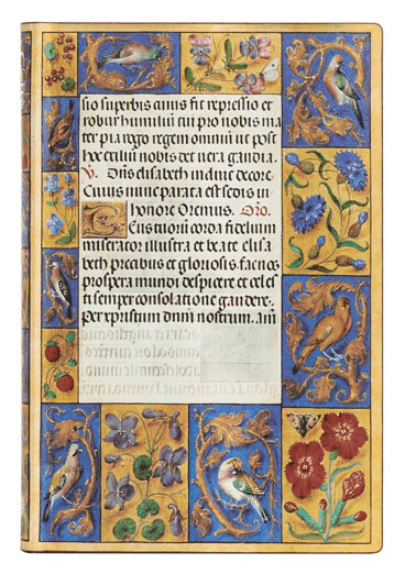 sio superbis cuius fit repressio et
robur humilium tui pro nobis ma
ter pia rogo regem omnium ut post
hoc exilium nobis det vera gaudia.
V. Dns elisabeth induit decore
Cuius nunc parata est sedis in
honore Oremus. Oro.
Deus tuorum corda fidelium
miserator illustra et beate elisa
beth precibus et gloriosis fac nos
prospera mundi despicere et celes
ti semper consolatione gaudere.
per xpristum dnm nostrum. am